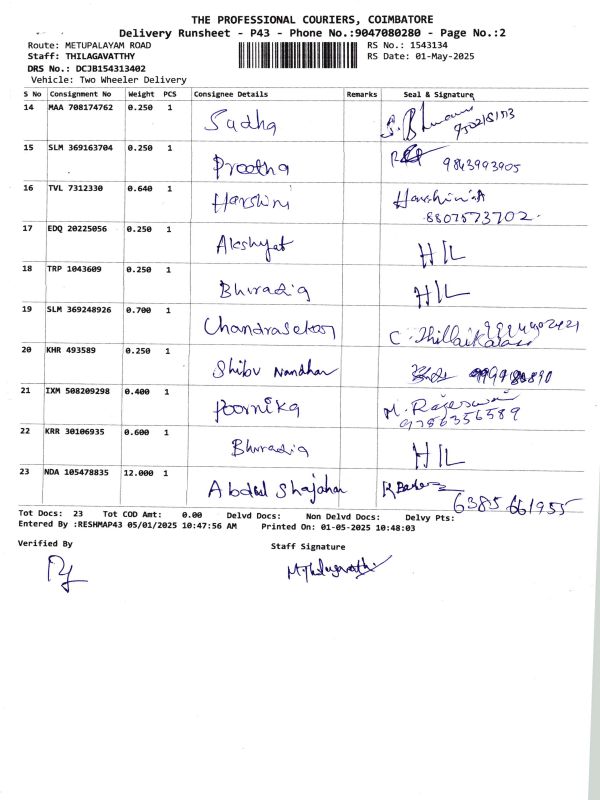 THE PROFESSIONAL COURIERS, COIMBATORE
Delivery Runsheet - P43 - Phone No.:9047080280 - Page No.:2
Route: METUPALAYAM ROAD RS No.: 1543134
Staff: THILAGAVATTHY RS Date: 01-May-2025
DRS No.: DCJB154313402
Vehicle: Two Wheeler Delivery
S No Consignment No Weight PCS Consignee Details Remarks Seal & Signature
14 MAA 708174762 0.250 1 Sudha
15 SLM 369163704 0.250 1 Preetha 9843993905
16 TVL 7312330 0.640 1 Harshini Harshini
8807573702
17 EDQ 20225056 0.250 1 Akshyat HIL
18 TRP 1043609 0.250 1 Bhuradig HIL
19 SLM 369248926 0.700 1 Chandrasekar C. Thillaikarasi
20 KHR 493589 0.250 1 Shibu Nandhan
21 IXM 508209298 0.400 1 Poornika M. Rajeswari
9786356589
22 KRR 30106935 0.600 1 Bhuradig HIL
23 NDA 105478835 12.000 1 Abdul Shajahan 6385661955
Tot Docs: 23 Tot COD Amt: 0.00 Delvd Docs: Non Delvd Docs: Delvy Pts:
Entered By :RESHMAP43 05/01/2025 10:47:56 AM Printed On: 01-05-2025 10:48:03
Verified By Staff Signature
M.Thilagavathi